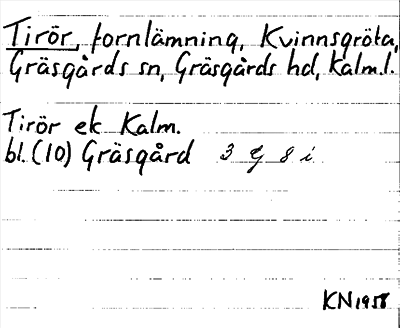 Tirör, fornlämning, Kvinnsgröta,
Gräsgårds sn, Gräsgårds hd, Kalm.l.
Tirör ek Kalm.
bl. (10) Gräsgård 3 G 8 i
KN1958